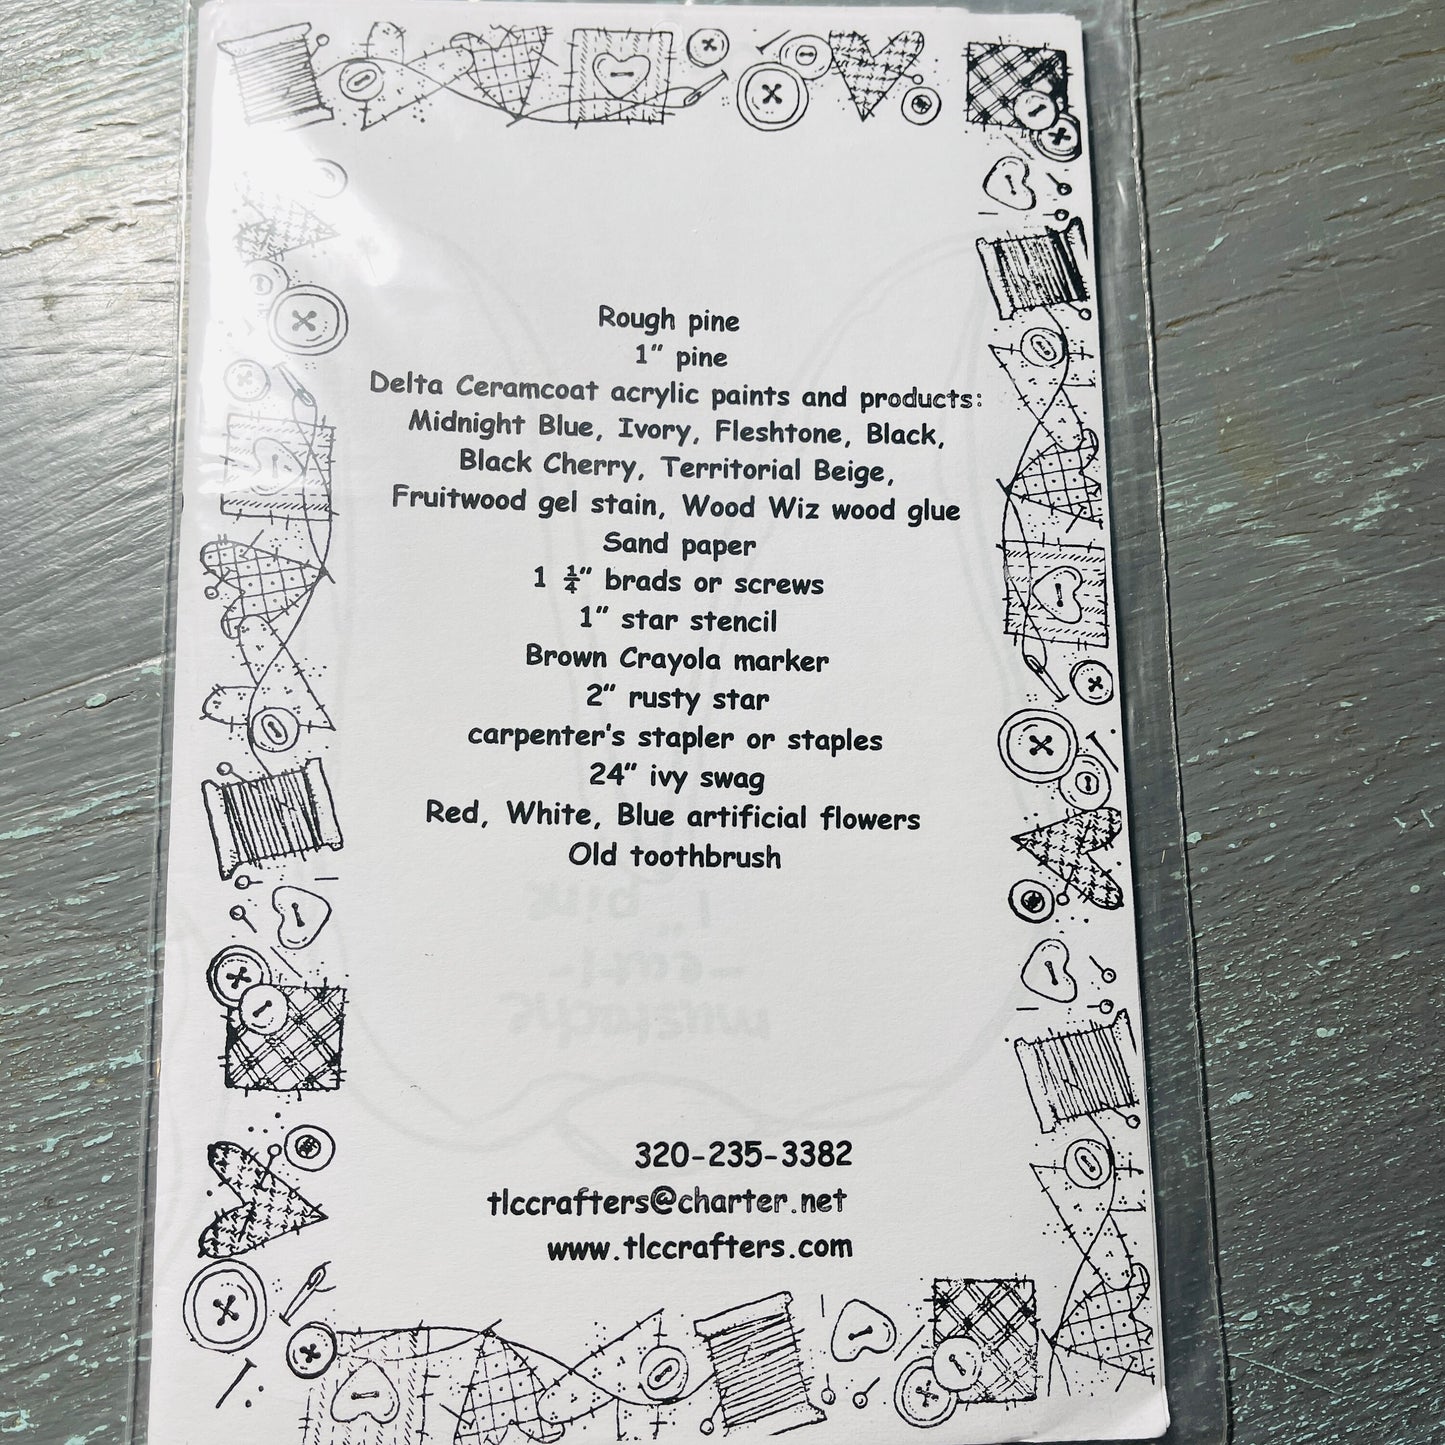 Rough pine
1" pine
Delta Ceramcoat acrylic paints and products:
Midnight Blue, Ivory, Fleshtone, Black,
Black Cherry, Territorial Beige,
Fruitwood gel stain, Wood Wiz wood glue
Sand paper
1 ¼" brads or screws
1" star stencil
Brown Crayola marker
2" rusty star
carpenter's stapler or staples
24" ivy swag
Red, White, Blue artificial flowers
Old toothbrush
1" pine
-cut1-
mustache
320-235-3382
tlccrafters@charter.net
www.tlccrafters.com